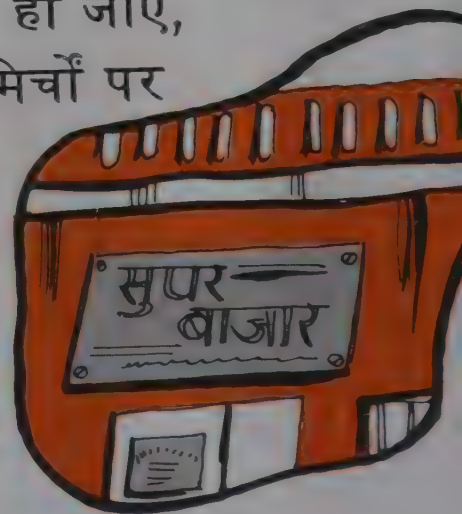 हो जाए,
मिर्चों पर
सुपर
बाजार